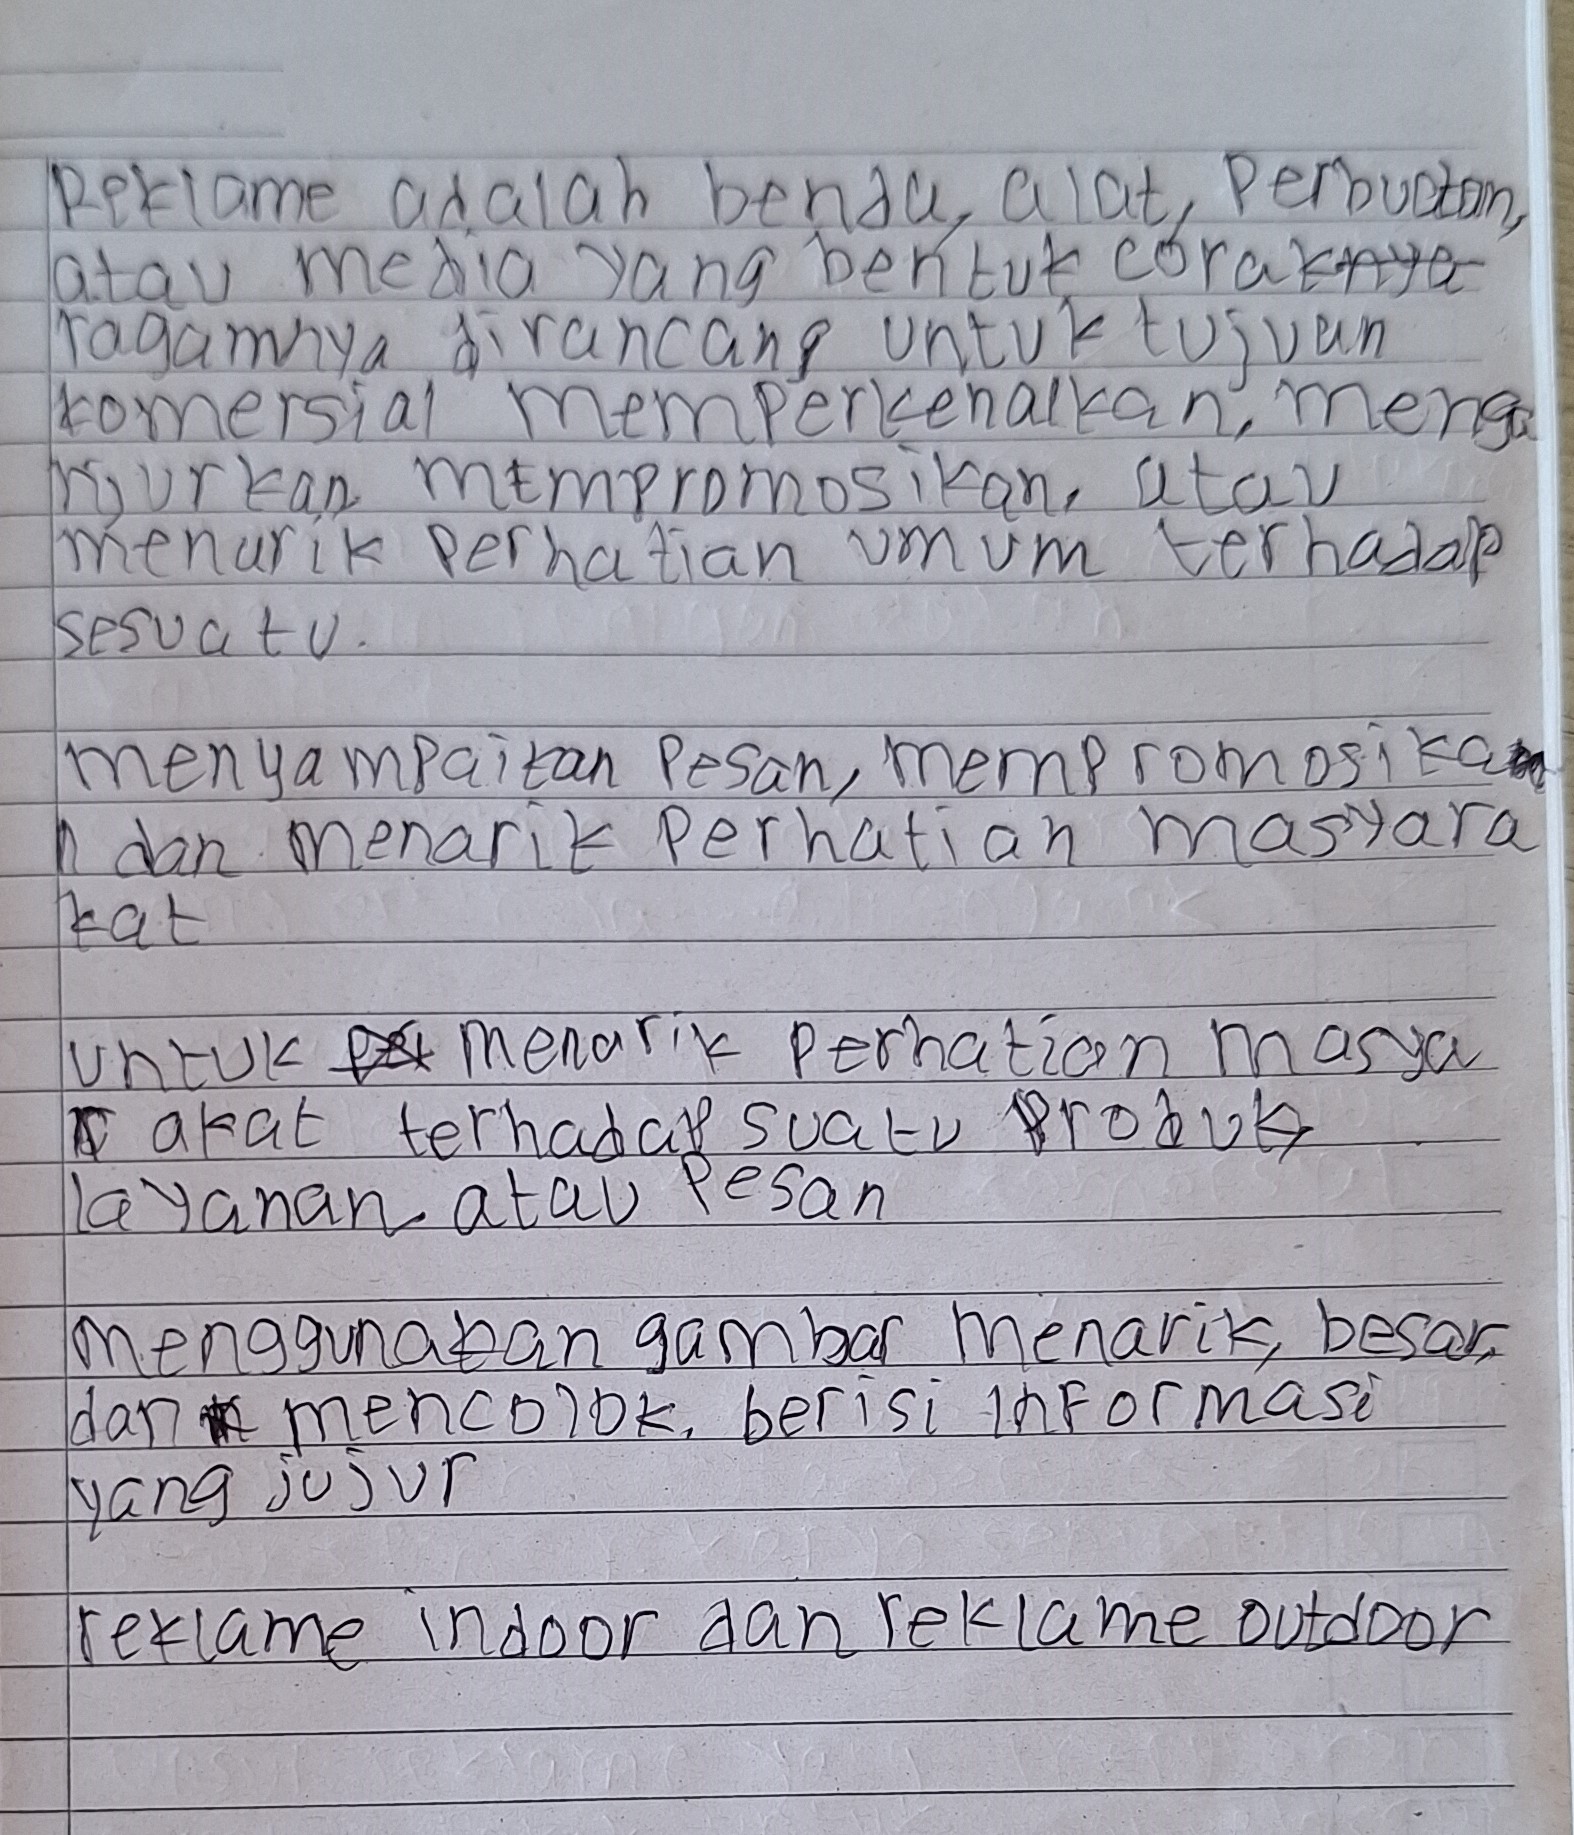 Reklame adalah benda, alat, Perbuatan,
atau media yang bentuk coraknya
ragamnya dirancang untuk tujuan
komersial memperkenalkan, menga
njurkan mempromosikan, atau
menarik Perhatian umum terhadap
sesuatu.
menyampaikan Pesan, mempromosika
n dan menarik Perhatian masyara
kat
untuk menarik Perhatian masya
r akat terhadap suatu Produk,
layanan atau Pesan
menggunakan gambar menarik, besar,
dan mencolok. berisi informasi
yang jujur
reklame indoor dan reklame outdoor